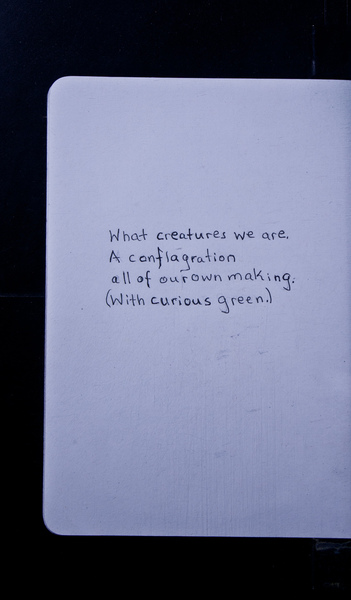 What creatures we are.
A conflagration
all of our own making.
(With curious green.)